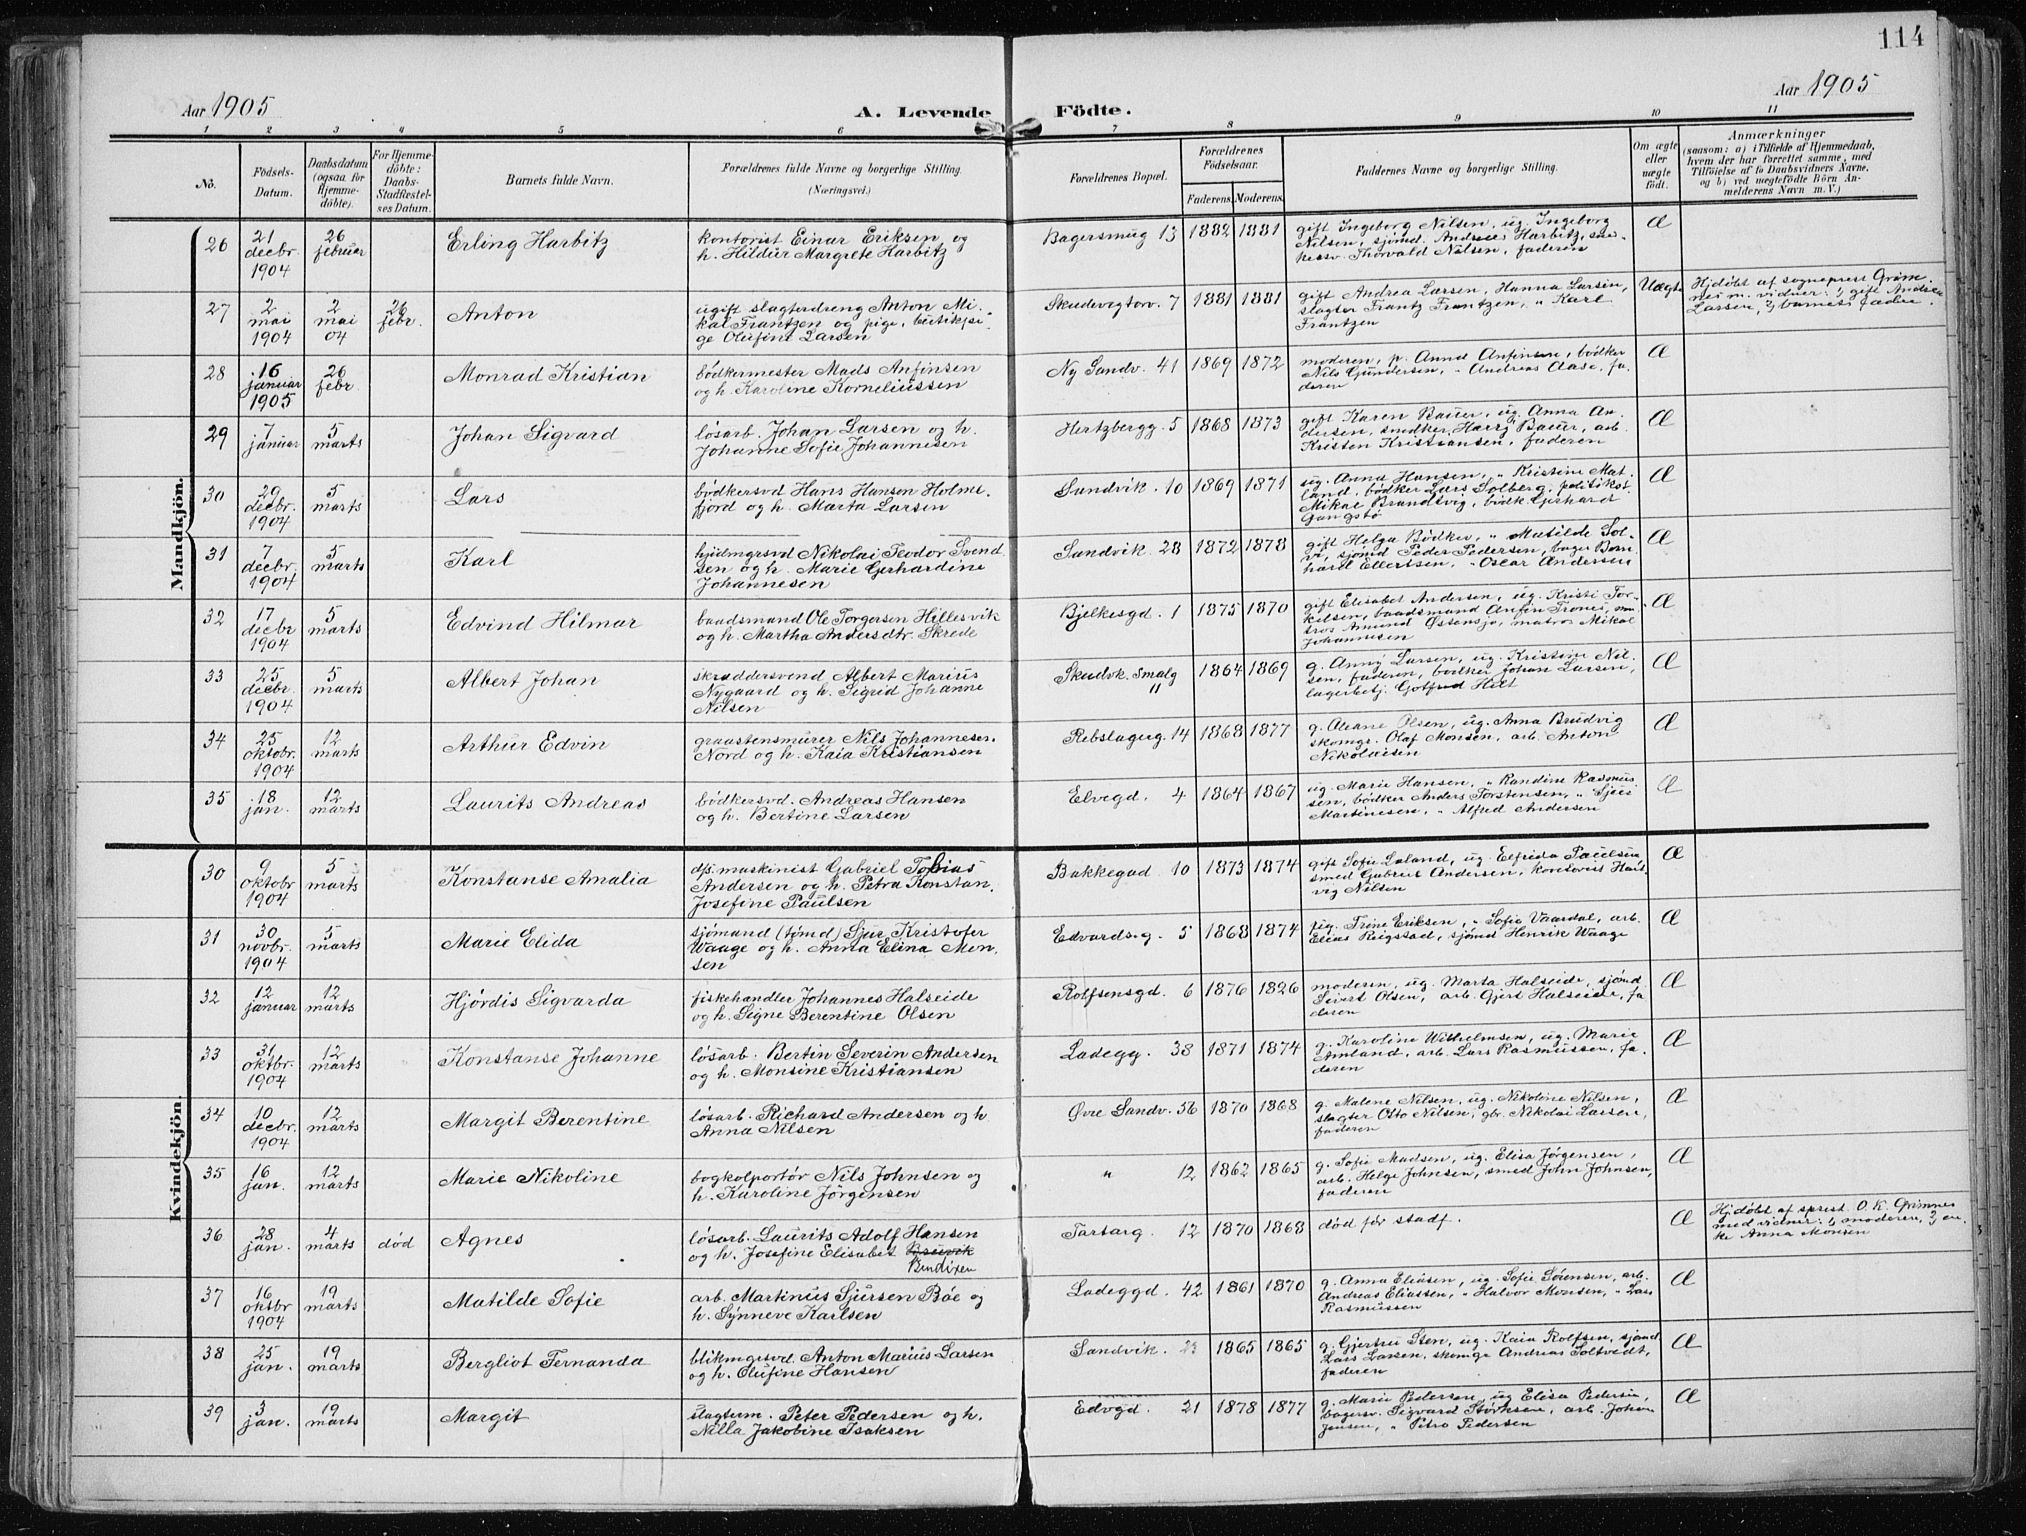 114
Aar 1905
A. Levende Födte.
Aar 1905
1 2 3 4 5 6 7 8 9 10 11
No.
Födsels-Datum.
Daabsdatum (ogsaa for Hjemme-döbte).
For Hjemme-döbte: Daabs-Stadfæstel-ses Datum.
Barnets fulde Navn.
Forældrenes fulde Navne og borgerlige Stilling.
(Næringsvei.)
Forældrenes Bopæl.
Forældrenes Födselsaar.
Faderens. Moderens.
Faddernes Navne og borgerlige Stilling.
Om ægte eller uægte födt.
Anmærkninger
(saasom: a) i Tilfælde af Hjemmedaab,
hvem der har forrettet samme, med
Tilföielse af to Daabsvidners Navne,
og b) ved uægtefödte Börn An-
melderens Navn m. V.)
Mandkjön.
26 21 decbr. 1904 26 februar Erling Harbitz kontorist Einar Eriksen og h. Hildur Margrete Harbitz Bagersmug 13 1882 1881 gift Ingeborg Nilsen, ug. Ingeborg Nilsen, sjömd. Andreas Harbitz, Thorvald Nilsen, faderen Æ
27 2 mai 1904 2 mai 04 26 febr. Anton ugift slagterdreng Anton Mikal Frantzen og pige, butikspige Olufine Larsen Skudevigtorv. 7 1881 1881 gift Andrea Larsen, Hanna Larsen, slagter Frantz Frantzen, " Karl Frantzen Uægt. Hjdøbt af sogneprest Grimnes m. vidner: 1) gift Andrea Larsen, 2) barnets fader.
28 16 januar 1905 26 febr. Monrad Kristian bödkermester Mads Anfinsen og h. Karoline Korneliussen Ny Sandv. 41 1869 1872 moderen, p. Anna Anfinsen, bödker Nils Gundersen, " Andreas Aase, faderen Æ
29 7 januar 5 marts Johan Sigvard løsarb. Johan Larsen og h. Johanne Sofie Johannesen Hertzbergg. 5 1868 1873 gift Karen Bauer, ug. Anna Andersen, smedker Harry Bauer, arb. Kristen Kristiansen, faderen Æ
30 29 decbr. 1904 5 marts Lars bødkersvd Hans Hansen Holmefjord og h. Marta Larsen Sandvik. 10 1869 1871 ug. Anna Hansen, " Kristine Matland, bødker Lars Solberg, politikst. Mikal Brandtsvig, bødk. Gerhard Gangstø Æ
31 7 decbr. 1904 5 marts Karl hjulmgrsvd Nikolai Teodor Svendsen og h. Marie Gerhardine Johannesen Sandvik. 28 1872 1878 gift Helga Bödker, " Matilde Solvi, sjömd Peder Pedersen, bager Bernhard Ellertsen, " Oscar Andersen Æ
32 17 decbr 1904 5 marts Edvind Hilmar baadsmand Ole Torgersen Hillesvik og h. Martha Andersdtr. Skrede Bjelkesgd. 1 1875 1870 gift Elisabet Andersen, ug. Kristi Torkilsen, baadsmand Anfin Trones, matros Amund Østensjø, matros Mikal Johannesen Æ
33 25 decbr. 1904 5 marts Albert Johan skræddersvend Albert Marius Nygaard og h. Sigrid Johanne Nilsen Skudvk. Smalg 11 1864 1869 g. Anny Larsen, ug. Kristine Nilsen, faderen, bødker Johan Larsen, lagerbetj. Gotfred Hilt Æ
34 25 oktobr. 1904 12 marts Arthur Edvin graastensmurer Nils Johannesen Nord og h. Kaia Kristiansen Rebslagerg. 14 1868 1877 g. Aleane Olsen, ug. Anna Brudvig skomgr. Olaf Monsen, arb. Anton Nikolaisen Æ
35 18 jan. 12 marts Laurits Andreas bödkersvd. Andreas Hansen og h. Bertine Larsen Elvegd. 4 1864 1867 ug. Marie Hansen, " Randine Rasmussen, bødker Anders Torstensen, " Martinesen, " Alfred Andersen Æ
Kvindekjön.
30 9 oktobr 1904 5 marts Konstanse Amalia dps. maskinist Gabriel Tobias Andersen og h. Petra Konstan. Josefine Paulsen Bakkegad 10 1873 1874 gift Sofie Loland, ug. Elfrida Paulsen smed Gabriel Andersen, kontorist Hartvig Nilsen Æ
31 30 novbr. 1904 5 marts Marie Elida sjömand (tømd) Sjur Kristofer Waage og h. Anna Elina Monsen Edvards.g. 5 1868 1874 ug. Trine Eriksen, " Sofie Vaardal, arb. Elias Rigstad, sjömd Henrik Waage Æ
32 12 januar 12 marts Hjördis Sigvarda fiskehandler Johannes Halseide og h. Signe Berentine Olsen Rolfsensgd. 6 1876 1826 moderen, ug. Marta Halseide, sjömd Sivert Olsen, arb. Gjert Halseide, faderen Æ
33 31 oktbr. 1904 12 marts Konstanse Johanne løsarb. Bertin Severin Andersen og h. Monsine Kristiansen Ladegg. 38 1871 1874 g. Karoline Wilhelmsen, ug. Marie Amland, arb. Lars Rasmussen, faderen Æ
34 10 decbr. 1904 12 marts Margit Berentine løsarb. Richard Andersen og h Anna Nilsen Øvre Sandv. 56 1870 1868 g. Malene Nilsen, ug. Nikoline Nilsen, slagter Otto Nilsen, gbr. Nikolai Larsen, faderen Æ
35 16 jan. 12 marts Marie Nikoline bogkolportör Nils Johnsen og h. Karoline Jörgensen " 12 1862 1865 g. Sofie Madsen, ug. Elisa Jørgensen, arb. Helge Johnsen, smed John Johnsen, faderen Æ
36 28 jan. 4 marts död Agnes løsarb. Laurits Adolf Hansen og h. Josefine Elisabet Bendixen Tartarg. 12 1870 1868 död før stadf. Æ Hjdøbt af sprest. O. K. Grimnes med vidner: 1) moderen, 2) enke Anna Monsen
37 16 oktbr 1904 19 marts Matilde Sofie arb. Martinus Sjursen Bøe og h. Synneve Karlsen Ladeggd. 42 1861 1870 g. Anna Eliasen, ug. Sofie Sørensen, arb. Andreas Eliassen, " Halvor Monsen, " Lars Rasmussen Æ
38 25 jan. 19 marts Bergliot Fernanda blikmgrsvd. Anton Marius Larsen og h. Olufine Hansen Sandvik. 23 1865 1865 g. Gjertrui Sten, ug. Kaia Rolfsen, sjömd Lars Larsen, skomgr Andreas Soltvedt, faderen Æ
39 3 jan. 19 marts Margit slagtum. Peter Pedersen og h. Nilla Jakobine Isaksen Edvgd. 21 1878 1877 g. Marie Pedersen, ug Elisa Pedersen, bagersv. Sigvard Störksen, arb. Johan Jensen, " Petra Pedersen Æ